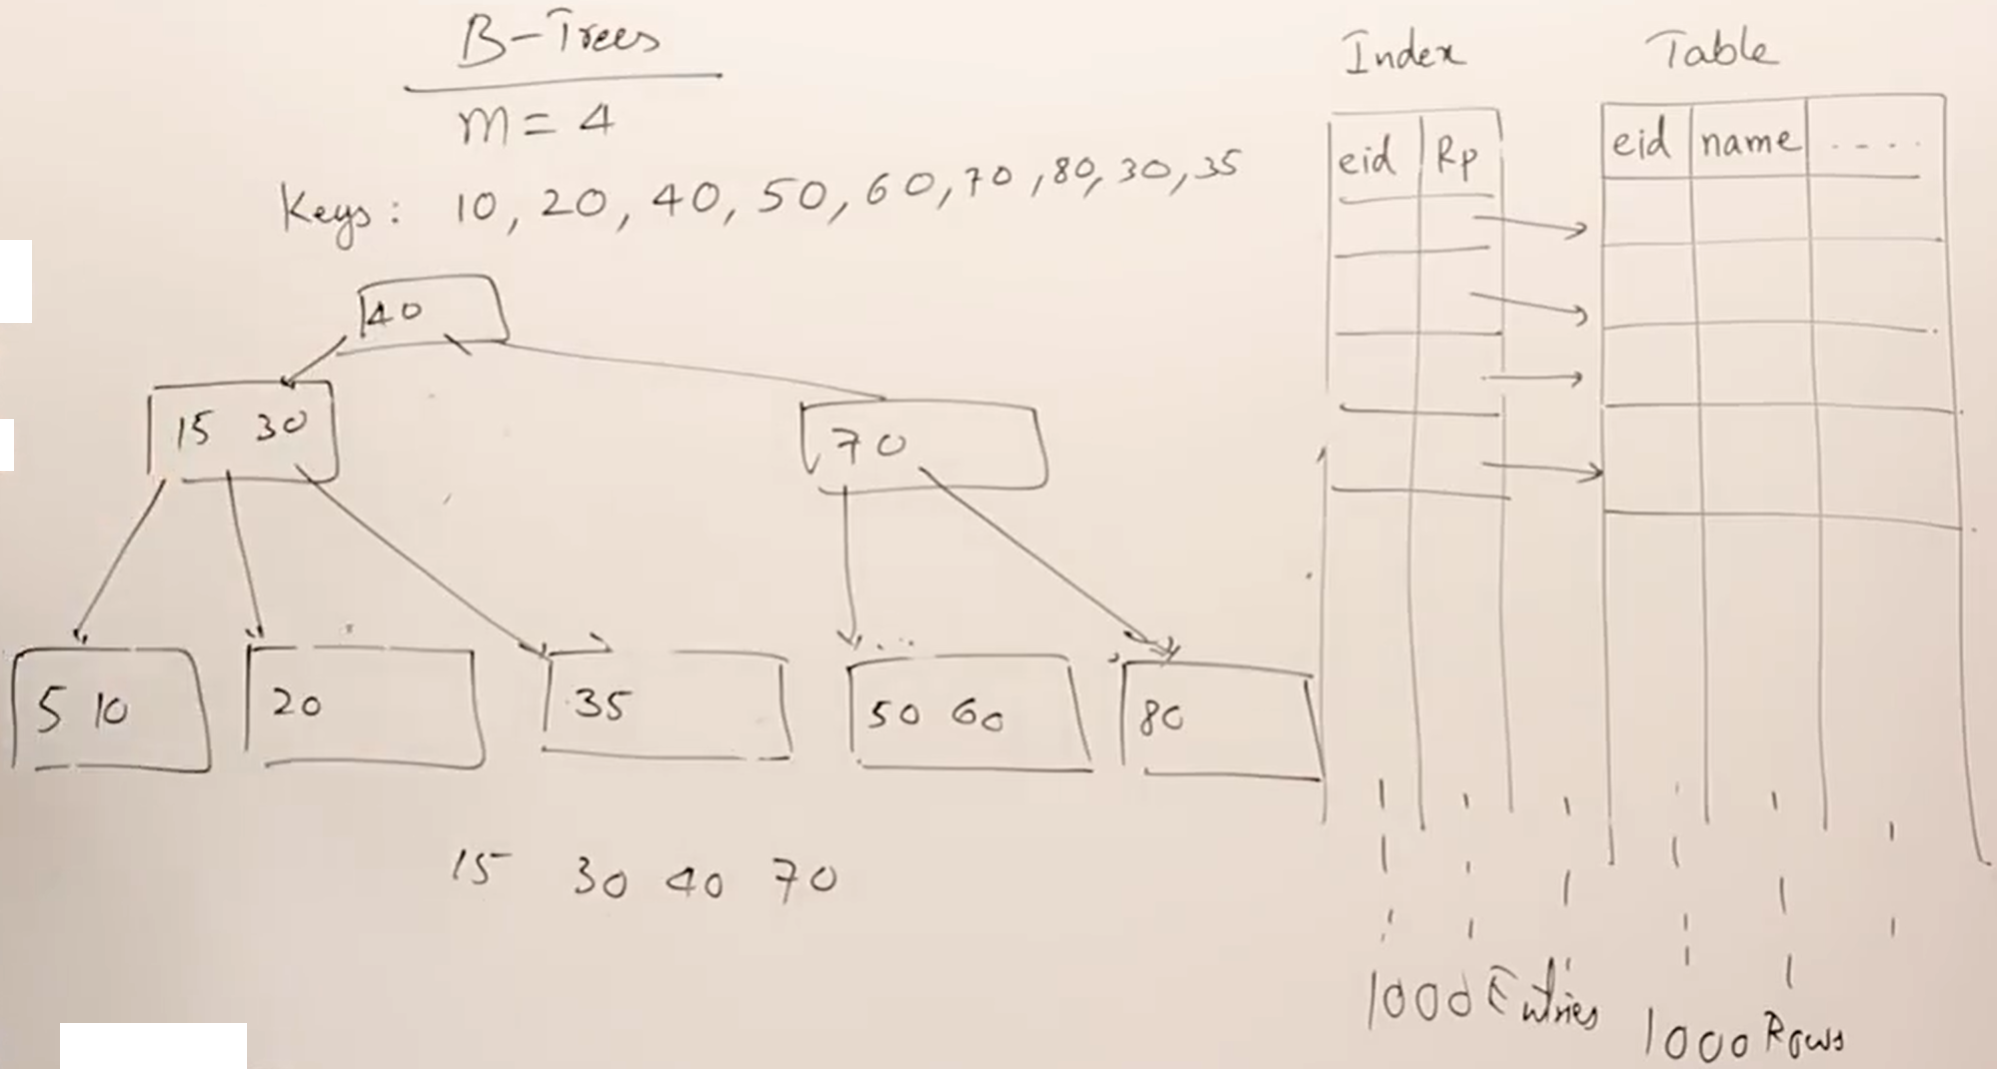 B-Trees
m = 4
Keys: 10, 20, 40, 50, 60, 70, 80, 30, 35
40
15 30
70
5 10
20
35
50 60
80
15 30 40 70
Index
eid Rp
1000 Entries
Table
eid name ....
1000 Rows